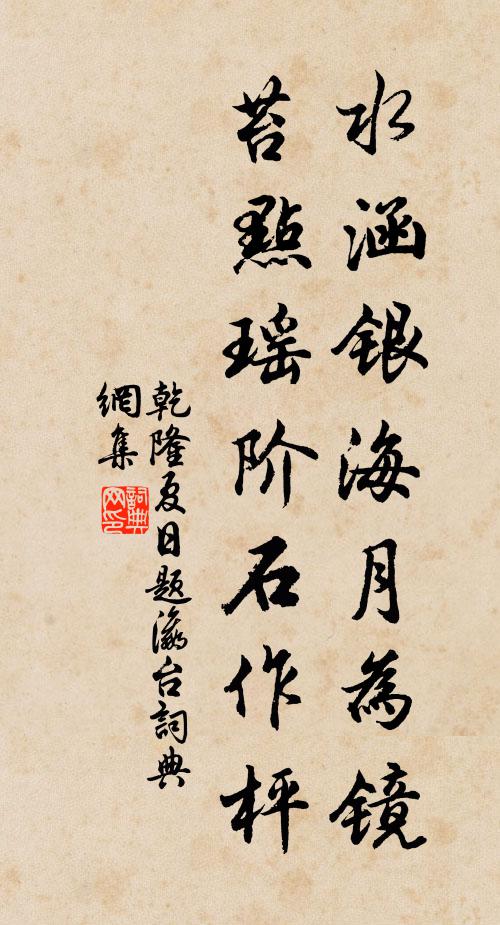 水涵银海月為镜
苔點瑶阶石作枰
乾隆夏日题瀛台詞典
網集
詞典
网印